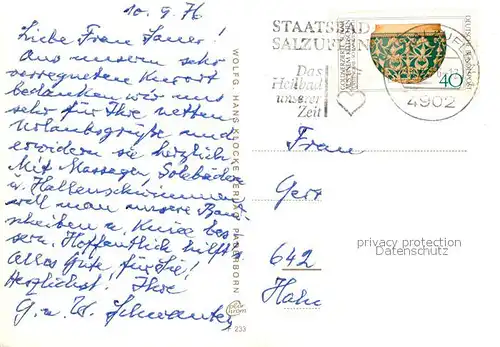 10.9.76
Liebe Frau Sauer!
Aus unserm sehr
verregneten Kurort
bedanken wir uns
sehr für Ihre netten
Urlaubsgrüße und
erwidern sie herzlich.
Mit Massagen, Solebädern
u. Hallenschwimmen
will man unsere Band-
scheiben u. Knie bes-
sern. Hoffentlich hilft's.
Alles Gute für Sie!
Herzlichst! Ihre
G. u. W.
WOLFG. HANS KLOCKE VERLAG PADERBORN
F 233
STAATSBAD
SALZUFLEN
Das
Heilbad
unserer
Zeit
4902
40
DEUTSCHE BUNDESPOST
Frau
Gerr
642
Hahn
privacy protection
Datenschutz